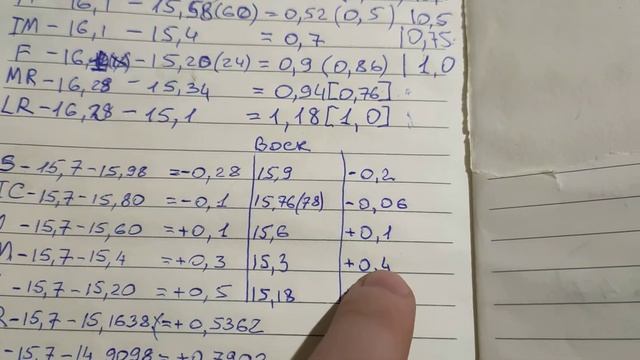 16,1 - 15,58(60) = 0,52 (0,5) | 0,5
IM - 16,1 - 15,4 = 0,7 | 0,75
F - 16, - 15,20(24) = 0,9 (0,86) | 1,0
MR - 16,28 - 15,34 = 0,94 [0,76]
LR - 16,28 - 15,1 = 1,18 [1,0]
Воск
S - 15,7 - 15,98 = -0,28 | 15,9 | -0,2
IC - 15,7 - 15,80 = -0,1 | 15,76(78) | -0,06
- 15,7 - 15,60 = +0,1 | 15,6 | +0,1
- 15,7 - 15,4 = +0,3 | 15,3 | +0,4
- 15,7 - 15,20 = +0,5 | 15,18
R - 15,7 - 15,1638 = +0,5362
- 15,7 - 14,9098 = +0,7902